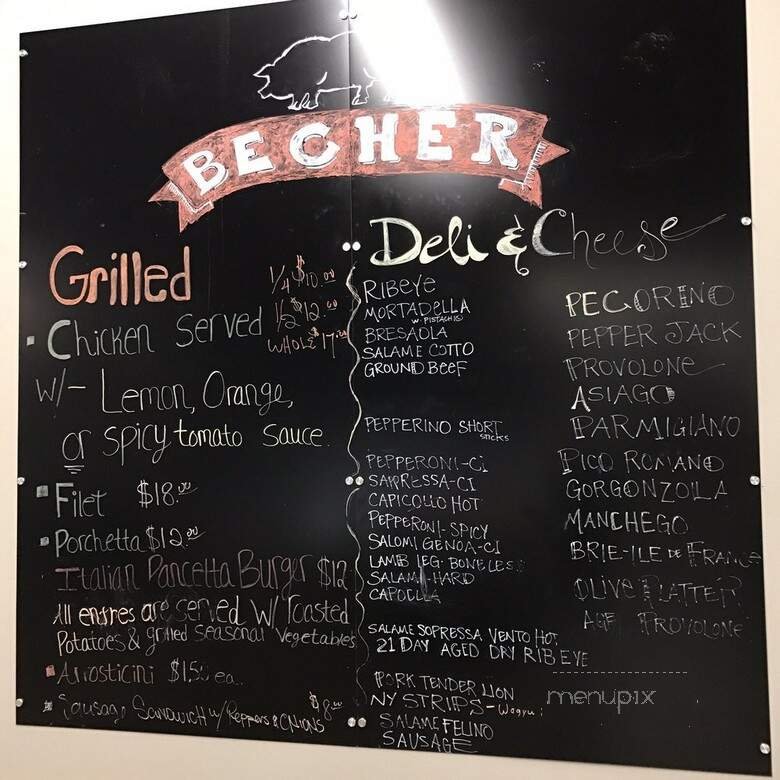 BECHER
Grilled
1/4 $10.00
Chicken Served 1/2 $12.00
WHOLE $17.00
w/- Lemon, Orange,
or spicy tomato sauce.
Filet $18.00
Porchetta $12.00
Italian Pancetta Burger $12
All entres are served w/ roasted
Potatoes & grilled seasonal vegetables
Arrosticini ea.
Sausage SANDWICH w/ Peppers & ONIONS $8.00
Deli & Cheese
RIBEYE
MORTADELLA
W. PISTACHIO
BRESAOLA
SALAME COTTO
GROUND BEEF
PEPPERINO SHORT
STICKS
PEPPERONI-CI
SAPRESSA-CI
CAPICOLLO HOT
PEPPERONI-SPICY
SALOMI GENOA-CI
LAMB LEG-BONELESS
SALAMI HARD
CAPOLLA
SALAME SOPRESSA VENTO HOT
21 DAY AGED DRY RIB EYE
PORK TENDER LION
NY STRIPS - Wagyu
SALAME FELINO
SAUSAGE
PECORINO
PEPPER JACK
PROVOLONE
ASIAGO
PARMIGIANO
PICO ROMANO
GORGONZOLA
MANCHEGO
BRIE-ILE DE FRANCE
OLIVE PLATTER
AGE PROVOLONE
menupix